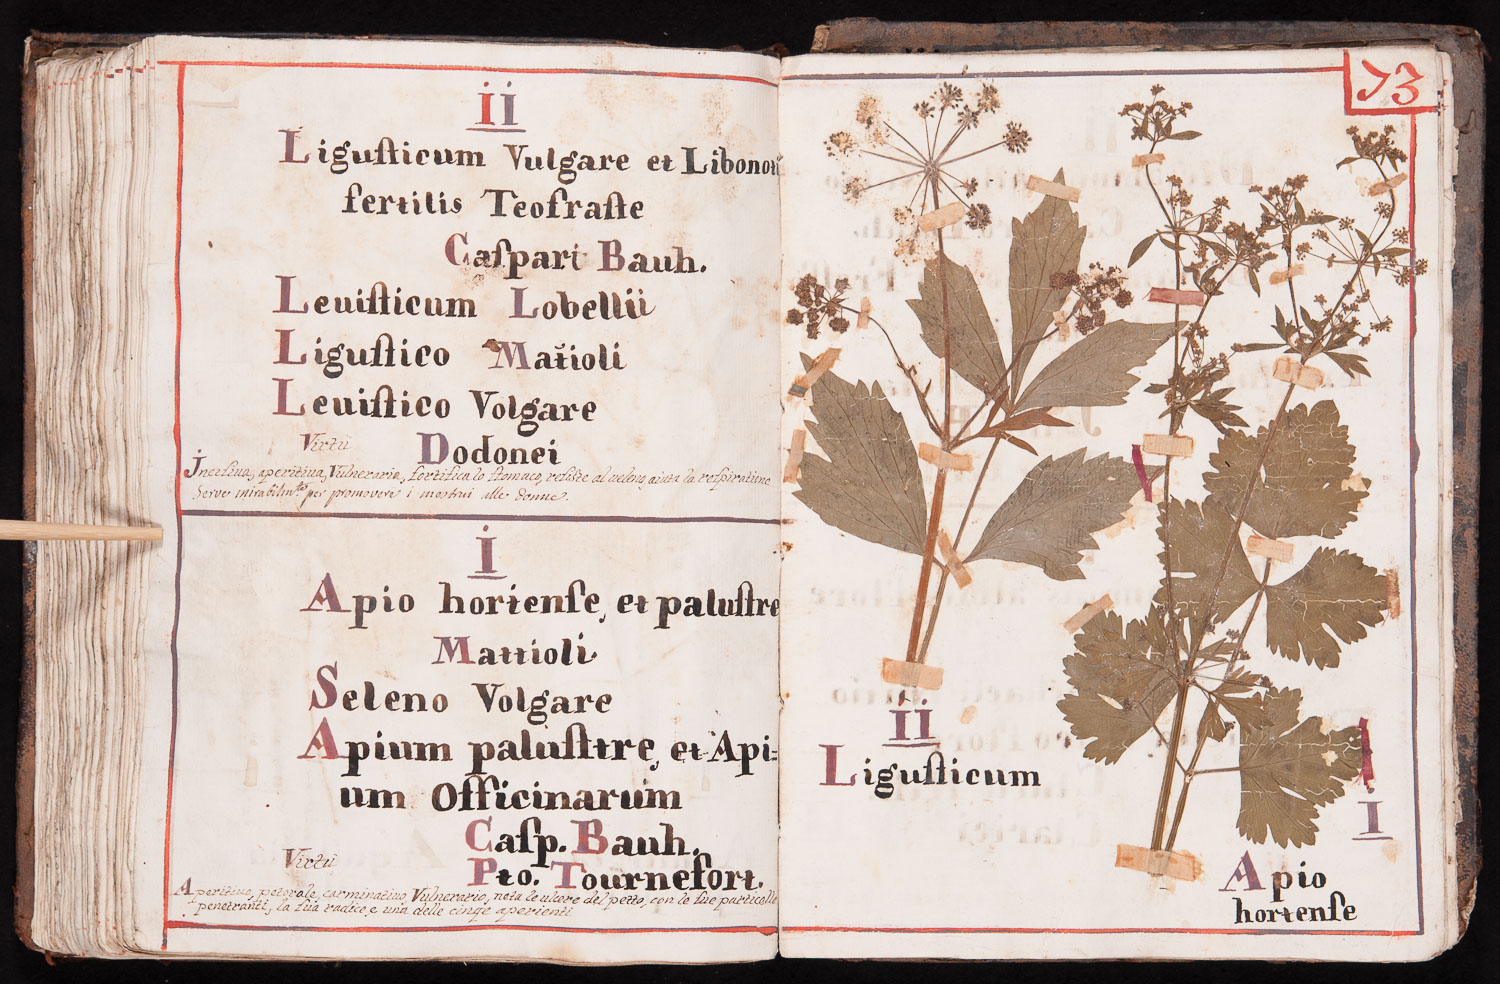 ii
Ligusticum Vulgare et Libonoti
fertilis Teofraste
Caspari Bauh.
Leuisticum Lobellii
Ligustico Matioli
Leuistico Volgare
Dodonei
Virtù
Incisiua, aperitiua, Vulneraria, fortifica lo stomaco, resiste al ueleno, aiuta la respiratione
Serue mirabilm.te per promovere i mestrui alle donne.
i
Apio hortense, et palustre
Mattioli
Seleno Volgare
Apium palustre, et Api=
um Officinarum
Casp. Bauh.
Pto. Tournefort.
Virtù
Aperitiuo, petorale, carminatiuo, Vulnerario, neta le ulcere del petto, con le sue particelle
penetranti, la sua radice e una delle cinqe aperienti
73
ii
Ligusticum
i
Apio
hortense